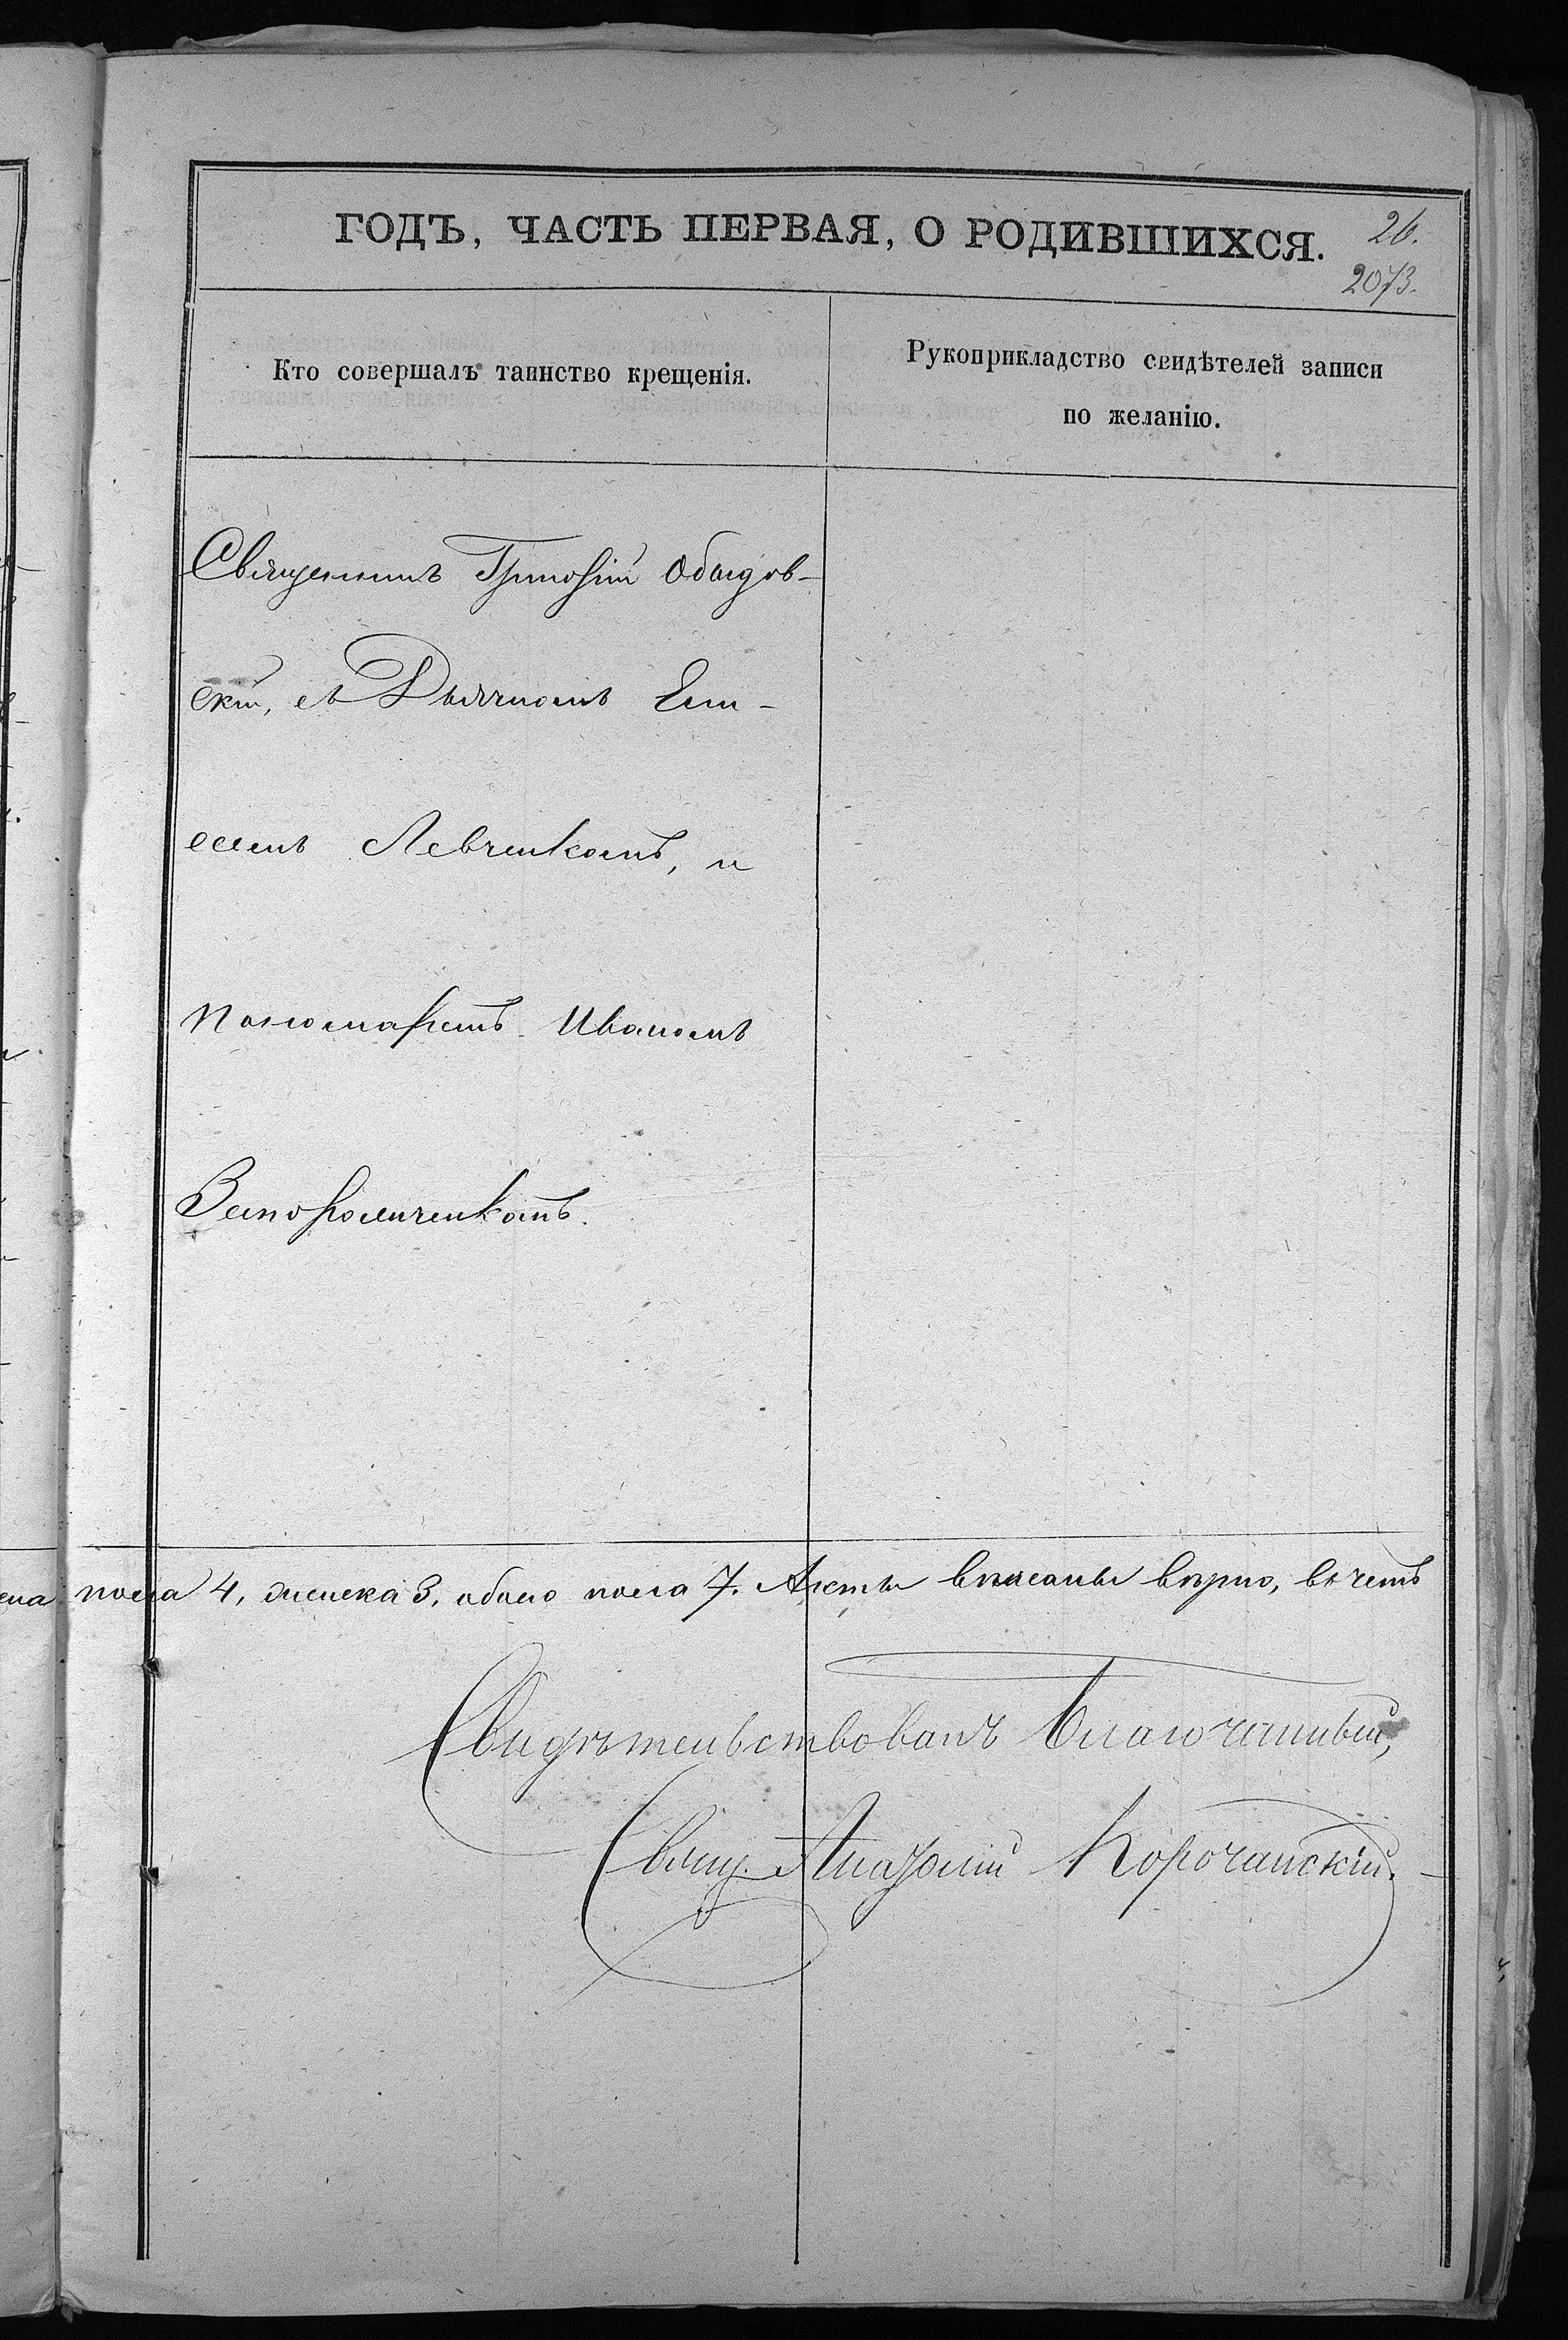 ГОДЪ, ЧАСТЬ ПЕРВАЯ, О РОДИВШИХСЯ.
26.
2073.
Кто совершалъ таинство крещенія.
Рукоприкладство свидѣтелей записи
по желанію.
Священникъ Григорій Обыдов-
скій, съ Дьячкомъ Ели-
сеемъ Левченкомъ, и
пономаремъ Иваномъ
Запорожченкомъ.
пола 4, женска 3, обоего пола 7. Акты вписаны вѣрно, въ чемъ
Свидѣтельствовалъ Благочинный,
Свящ. Корочанскій.